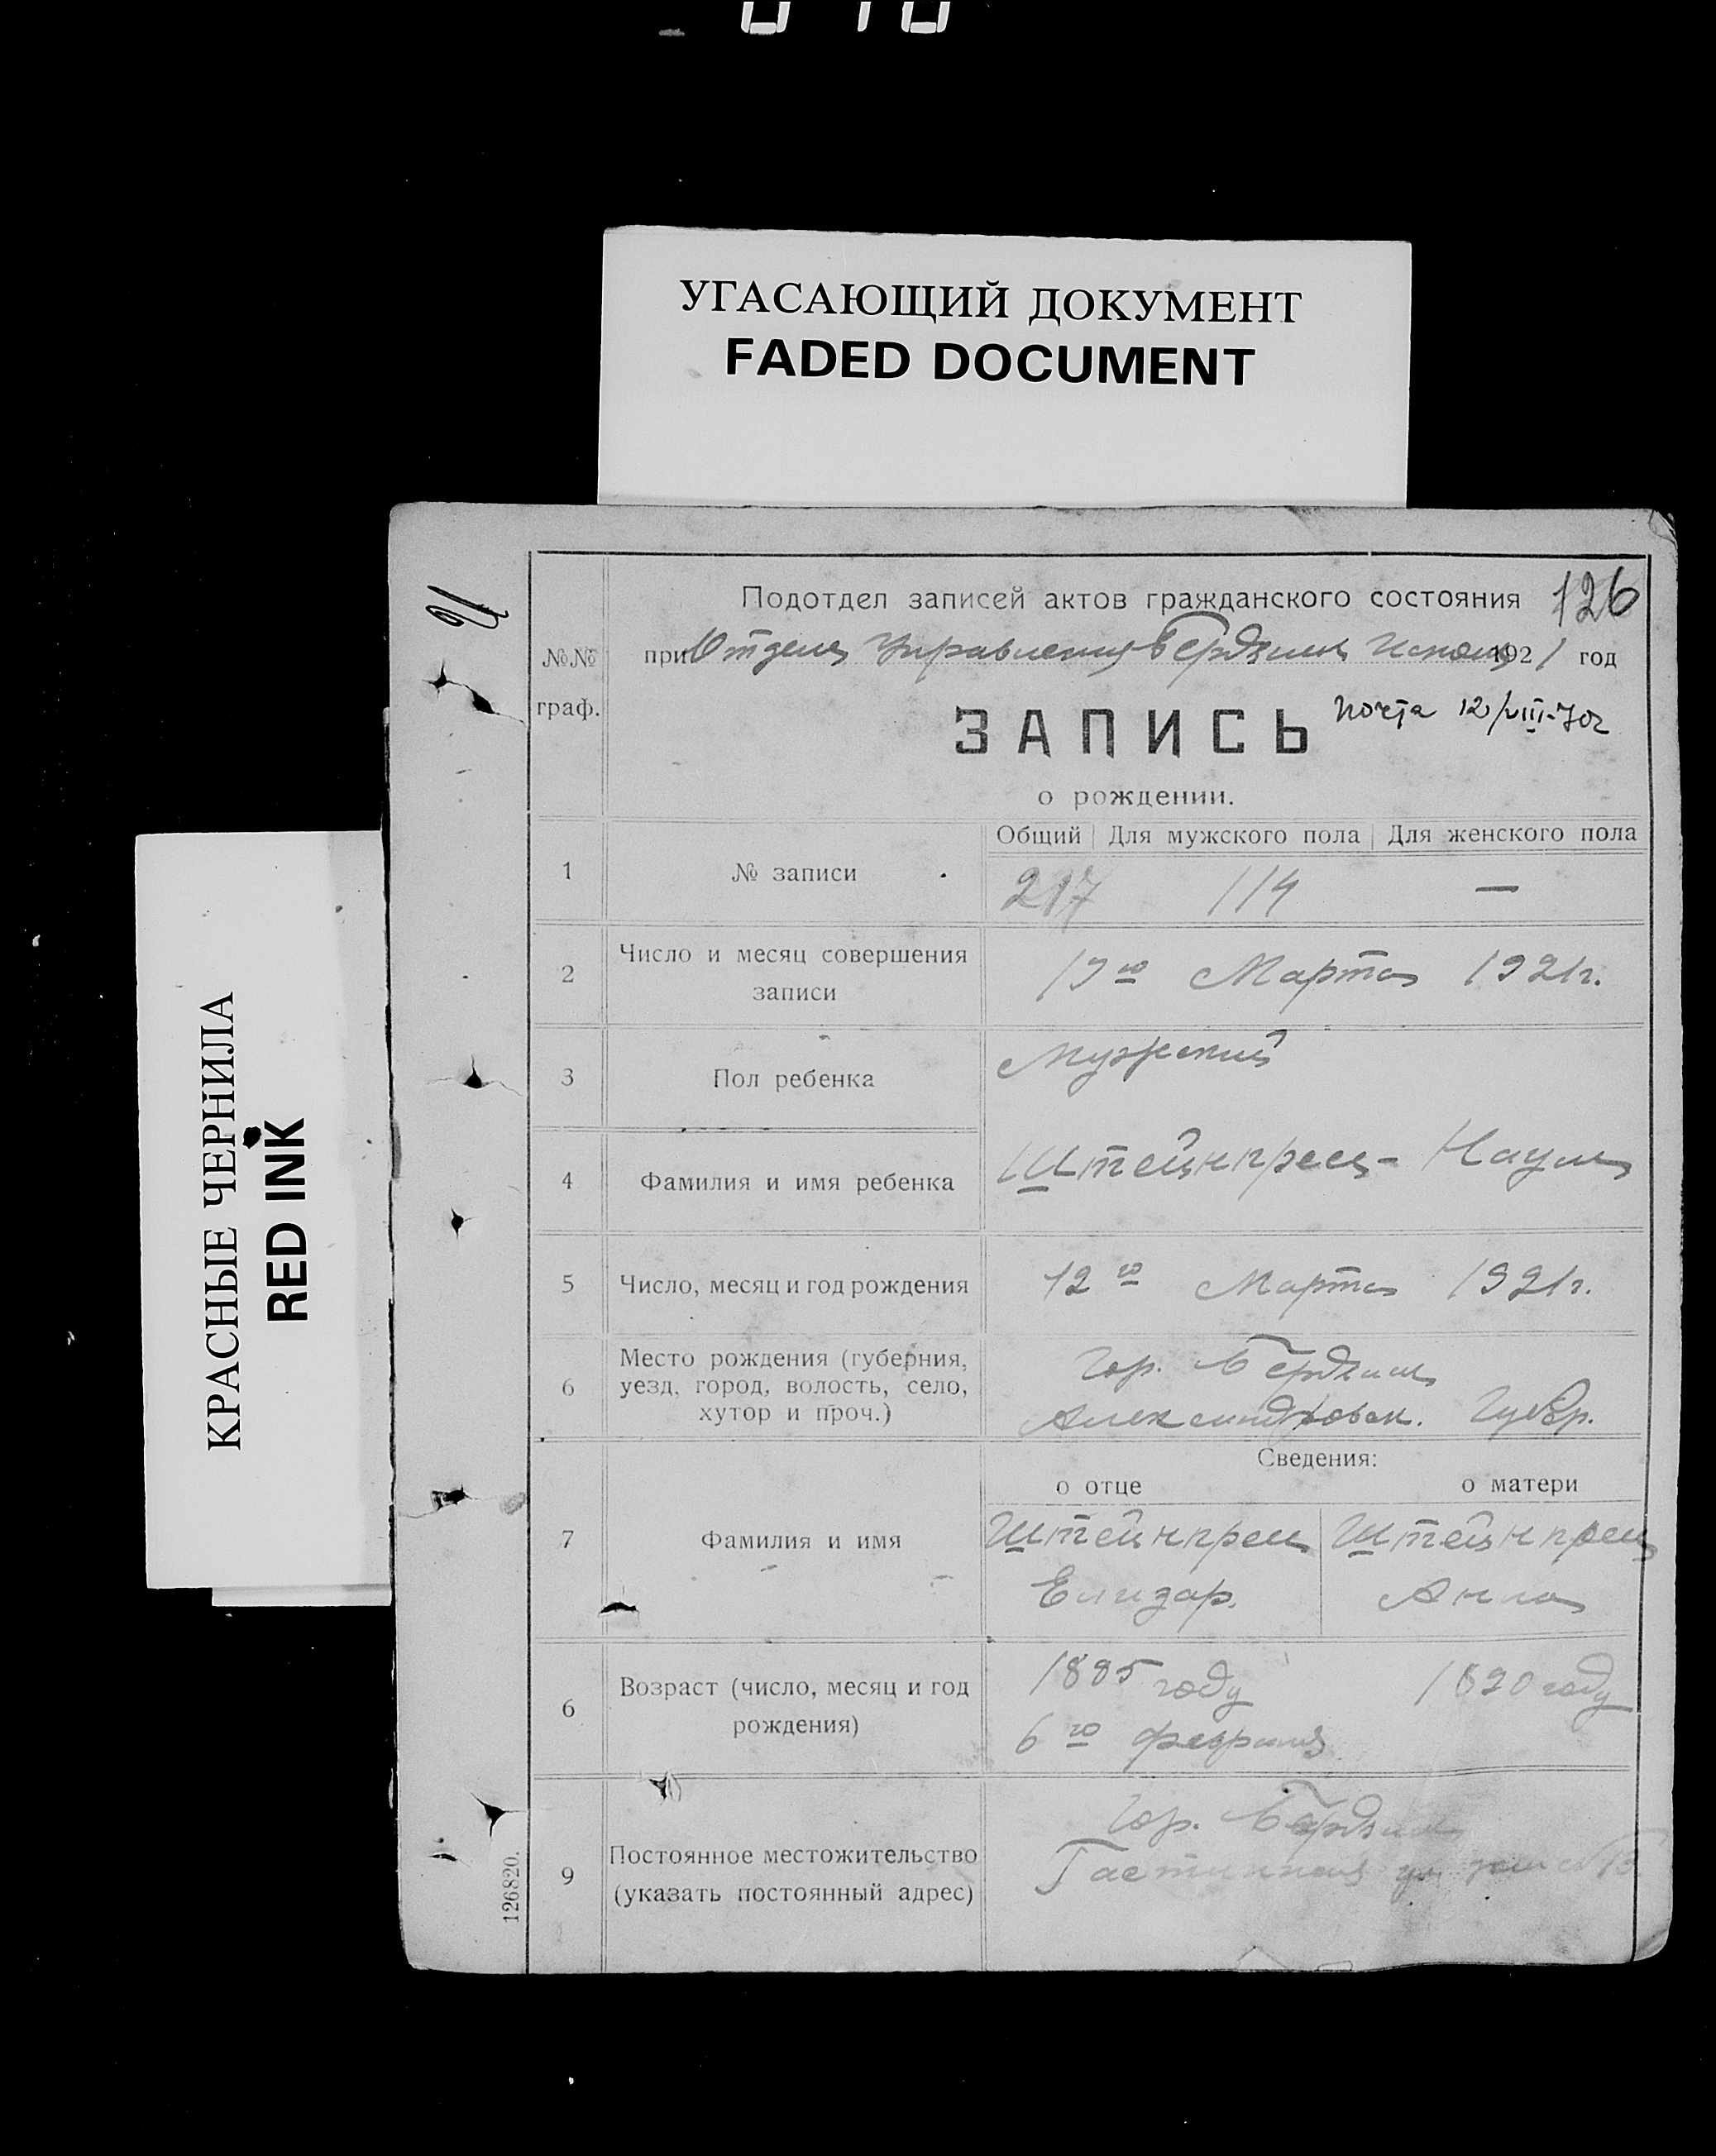 УГАСАЮЩИЙ ДОКУМЕНТ
FADED DOCUMENT
КРАСНЫЕ ЧЕРНИЛА
RED INK
Подотдел записей актов гражданского состояния 126
№№ граф.
при Отделе Управления Бердянск Исполк 1921 год
ЗАПИСЬ
почта 12/VIII-70г
о рождении.
Общий Для мужского пола Для женского пола
1 № записи 217 114 —
2 Число и месяц совершения записи 19го Марта 1921г.
3 Пол ребенка Мужской
4 Фамилия и имя ребенка Штейнпрец - Наум
5 Число, месяц и год рождения 12го Марта 1921г.
6 Место рождения (губерния, уезд, город, волость, село, хутор и проч.) Гор. Бердянск
Александровск. Губер.
Сведения:
о отце о матери
7 Фамилия и имя Штейнпрец Штейнпрец
Елизар. Анна
6 Возраст (число, месяц и год рождения) 1885 году 1890 году
6го февраля
9 Постоянное местожительство (указать постоянный адрес) Гор. Бердянск
ул
126820.